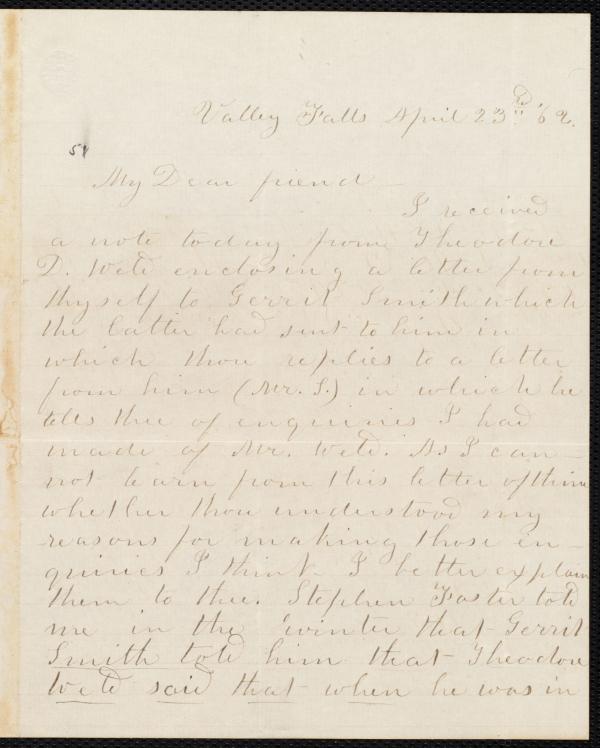 Valley Falls April 23rd '62.
51
My Dear friend
I received
a note today from Theodore
D. Weld enclosing a letter from
thyself to Gerrit Smith which
the latter had sent to him in
which thou replies to a letter
from him (Mr. S.) in which he
tells thee of enquiries I had
made of Mr. Weld. As I can-
not learn from this letter of thine
whether thou understood my
reasons for making those in-
quiries I think I better explain
them to thee. Stephen Foster told
me in the winter that Gerrit
Smith told him that Theodore
Weld said that when he was in